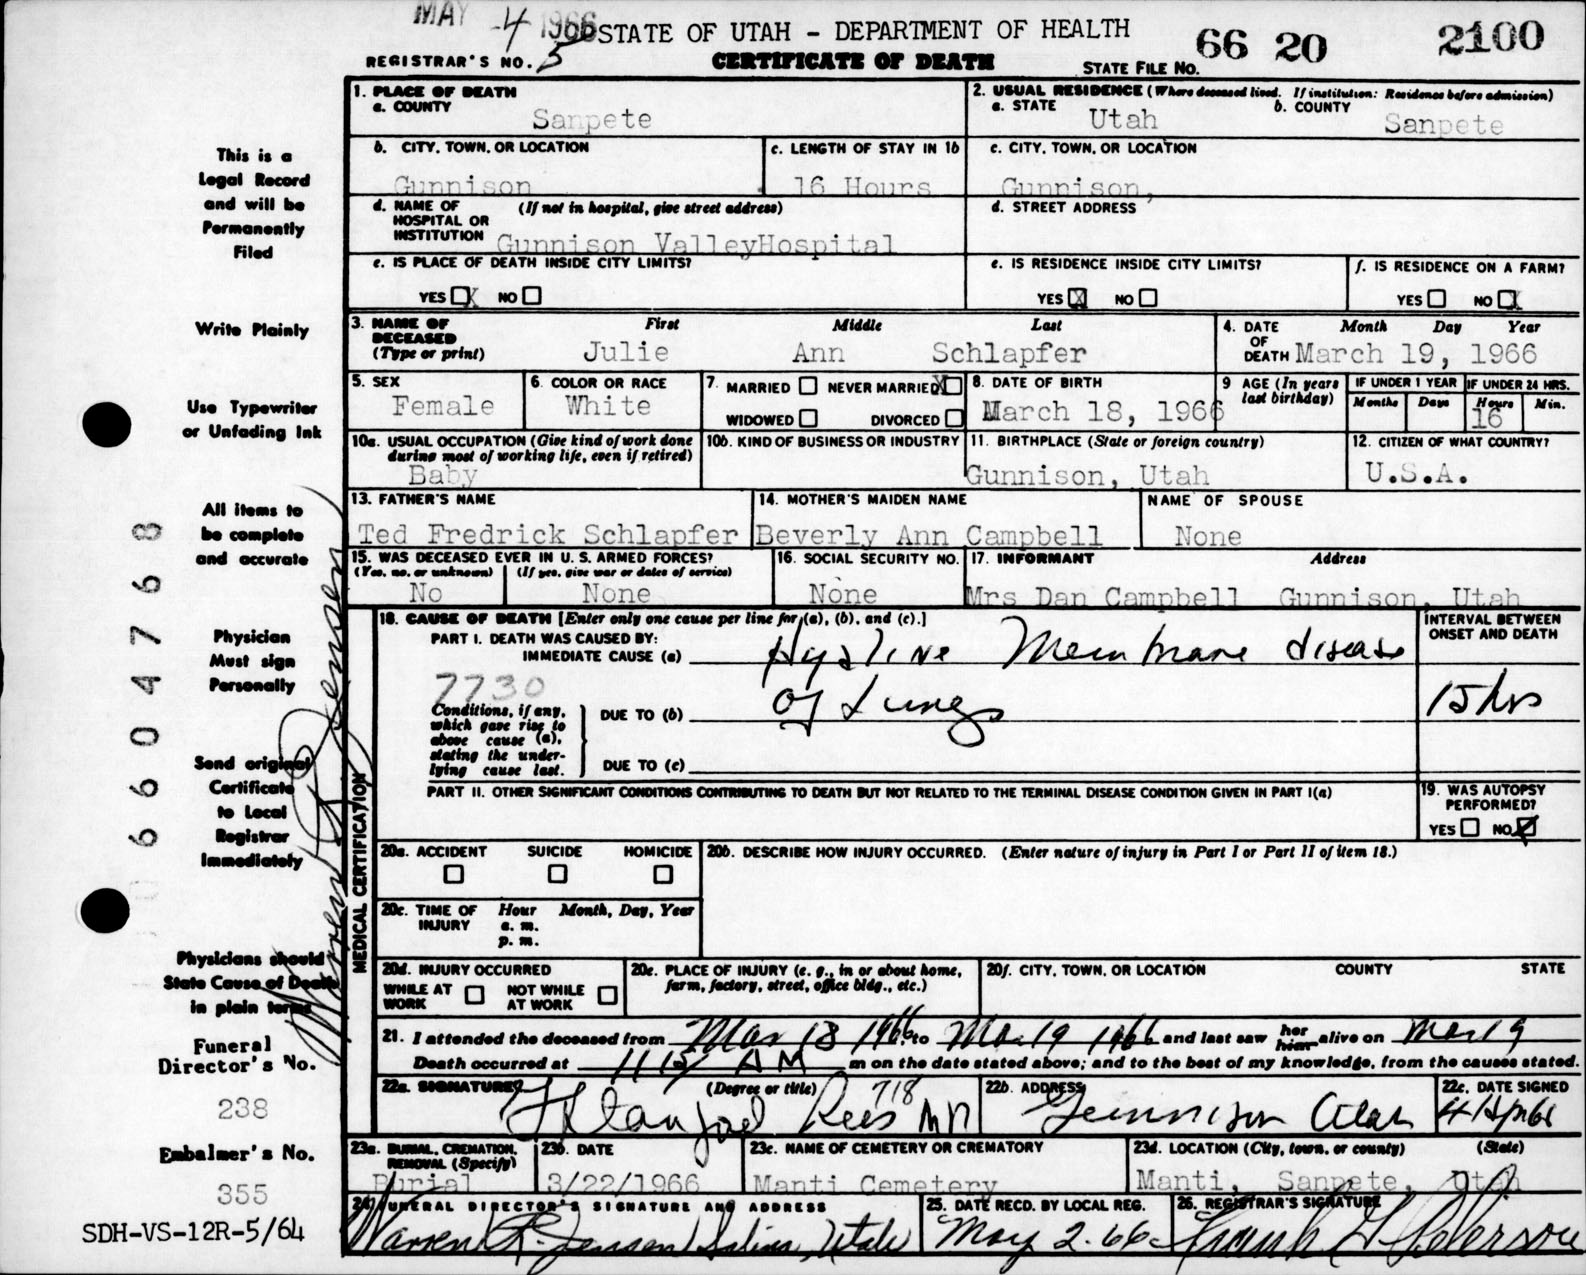 MAY -4 1966 STATE OF UTAH - DEPARTMENT OF HEALTH 66 20 2100
REGISTRAR'S NO. 5 CERTIFICATE OF DEATH STATE FILE NO.
1. PLACE OF DEATH 2. USUAL RESIDENCE (Where deceased lived. If institution: Residence before admission)
a. COUNTY Sanpete a. STATE Utah b. COUNTY Sanpete
b. CITY, TOWN, OR LOCATION c. LENGTH OF STAY IN 1b c. CITY, TOWN, OR LOCATION
Gunnison 16 Hours Gunnison,
d. NAME OF HOSPITAL OR INSTITUTION (If not in hospital, give street address) d. STREET ADDRESS
Gunnison ValleyHospital
e. IS PLACE OF DEATH INSIDE CITY LIMITS? e. IS RESIDENCE INSIDE CITY LIMITS? f. IS RESIDENCE ON A FARM?
YES X NO YES X NO YES NO X
3. NAME OF DECEASED (Type or print) First Middle Last 4. DATE OF DEATH Month Day Year
Julie Ann Schlapfer March 19, 1966
5. SEX 6. COLOR OR RACE 7. MARRIED NEVER MARRIED X 8. DATE OF BIRTH 9 AGE (In years last birthday) IF UNDER 1 YEAR IF UNDER 24 HRS.
Months Days Hours Min.
Female White WIDOWED DIVORCED March 18, 1966 16
10a. USUAL OCCUPATION (Give kind of work done during most of working life, even if retired) 10b. KIND OF BUSINESS OR INDUSTRY 11. BIRTHPLACE (State or foreign country) 12. CITIZEN OF WHAT COUNTRY?
Baby Gunnison, Utah U.S.A.
13. FATHER'S NAME 14. MOTHER'S MAIDEN NAME NAME OF SPOUSE
Ted Fredrick Schlapfer Beverly Ann Campbell None
15. WAS DECEASED EVER IN U. S. ARMED FORCES? 16. SOCIAL SECURITY NO. 17. INFORMANT Address
(Yes, no, or unknown) (If yes, give war or dates of service)
No None None Mrs Dan Campbell Gunnison, Utah
18. CAUSE OF DEATH [Enter only one cause per line for (a), (b), and (c).] INTERVAL BETWEEN ONSET AND DEATH
PART I. DEATH WAS CAUSED BY:
IMMEDIATE CAUSE (a) Hyaline Membrane disease
7730
Conditions, if any, which gave rise to above cause (a), stating the underlying cause last.
DUE TO (b) of Lungs 15 hrs
DUE TO (c)
PART II. OTHER SIGNIFICANT CONDITIONS CONTRIBUTING TO DEATH BUT NOT RELATED TO THE TERMINAL DISEASE CONDITION GIVEN IN PART I(a) 19. WAS AUTOPSY PERFORMED?
YES NO
20a. ACCIDENT SUICIDE HOMICIDE 20b. DESCRIBE HOW INJURY OCCURRED. (Enter nature of injury in Part I or Part II of item 18.)
20c. TIME OF INJURY Hour Month, Day, Year
a. m.
p. m.
20d. INJURY OCCURRED 20e. PLACE OF INJURY (e. g., in or about home, farm, factory, street, office bldg., etc.) 20f. CITY, TOWN, OR LOCATION COUNTY STATE
WHILE AT WORK NOT WHILE AT WORK
21. I attended the deceased from Mar 18 1966 to Mar 19 1966 and last saw her him alive on Mar 19
Death occurred at 11 15 AM m on the date stated above; and to the best of my knowledge, from the causes stated.
22a. SIGNATURE (Degree or title) 22b. ADDRESS 22c. DATE SIGNED
Stanford Rees 718 MD Gunnison Utah 4 Ap 66
23a. BURIAL, CREMATION, REMOVAL (Specify) 23b. DATE 23c. NAME OF CEMETERY OR CREMATORY 23d. LOCATION (City, town, or county) (State)
Burial 3/22/1966 Manti Cemetery Manti, Sanpete, Utah
24. FUNERAL DIRECTOR'S SIGNATURE AND ADDRESS 25. DATE RECD. BY LOCAL REG. 26. REGISTRAR'S SIGNATURE
Warren R. Jensen Salina, Utah May 2-66
MEDICAL CERTIFICATION
This is a
Legal Record
and will be
Permanently
Filed
Write Plainly
Use Typewriter
or Unfading Ink
All items to
be complete
and accurate
Physician
Must sign
Personally
Send original
Certificate
to Local
Registrar
Immediately
Physicians should
State Cause of Death
in plain terms
Funeral
Director's No.
238
Embalmer's No.
355
SDH-VS-12R-5/64
66 04768
Warren R Jensen